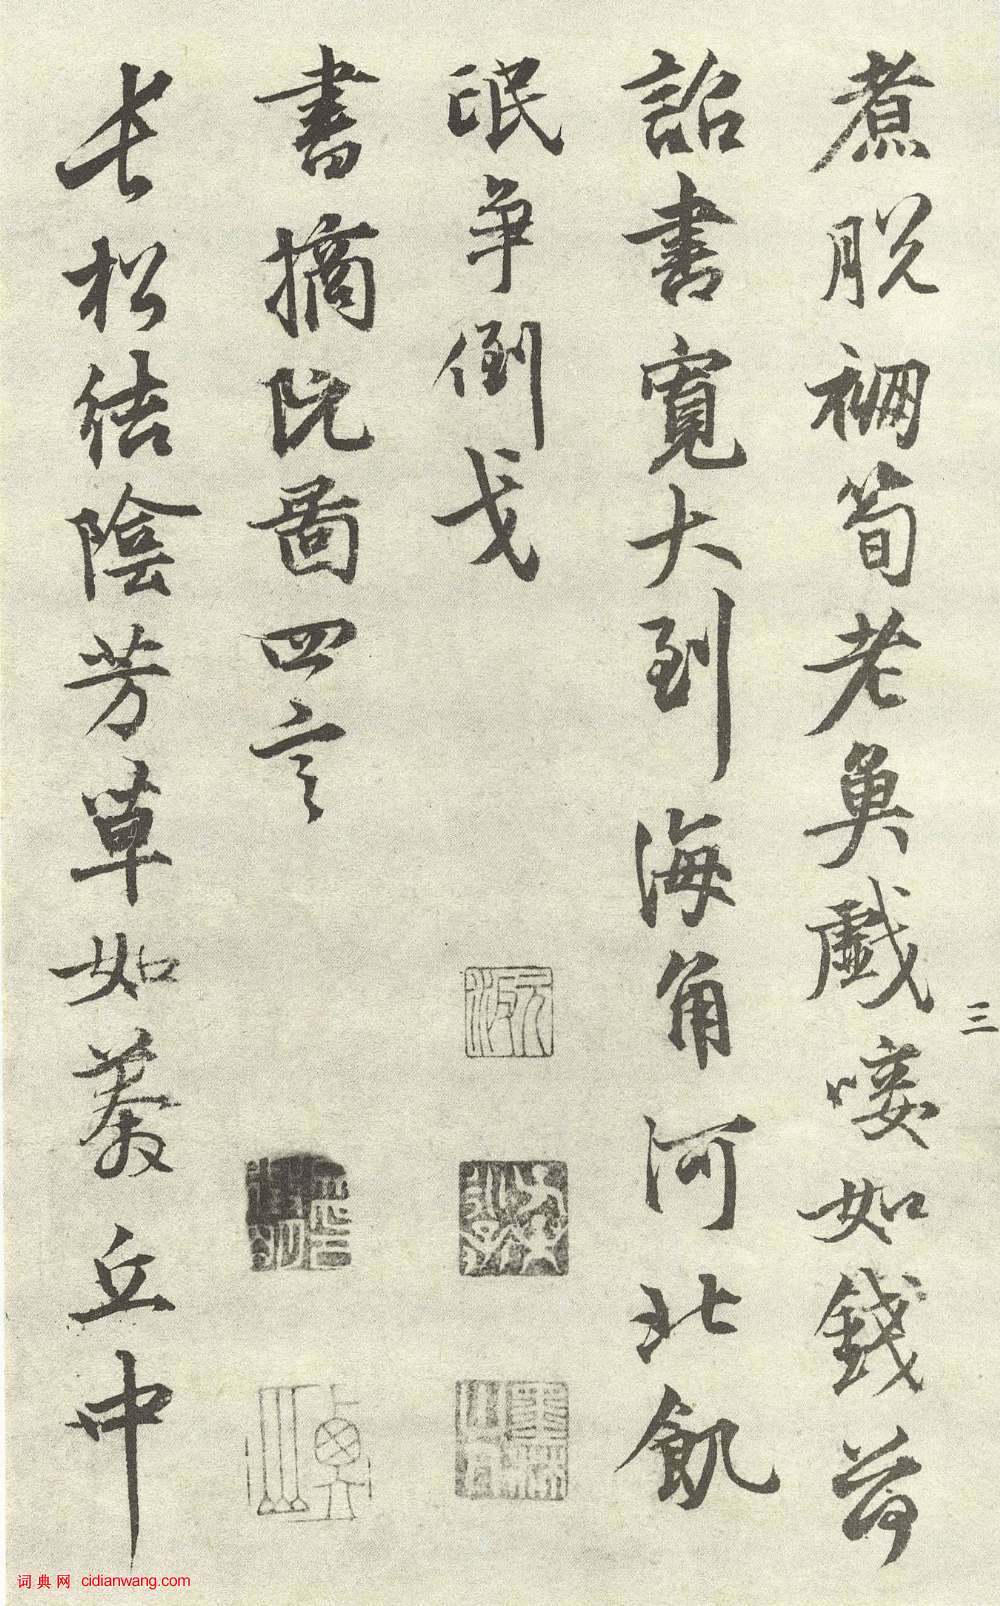 煮脱襕筍老奐戲唼如錢荷
詔書寬大到海角河北飢
氓争倒戈
書摘阮啚四言
長松結陰芳草如綦丘中
三
词典网 cidianwang.com